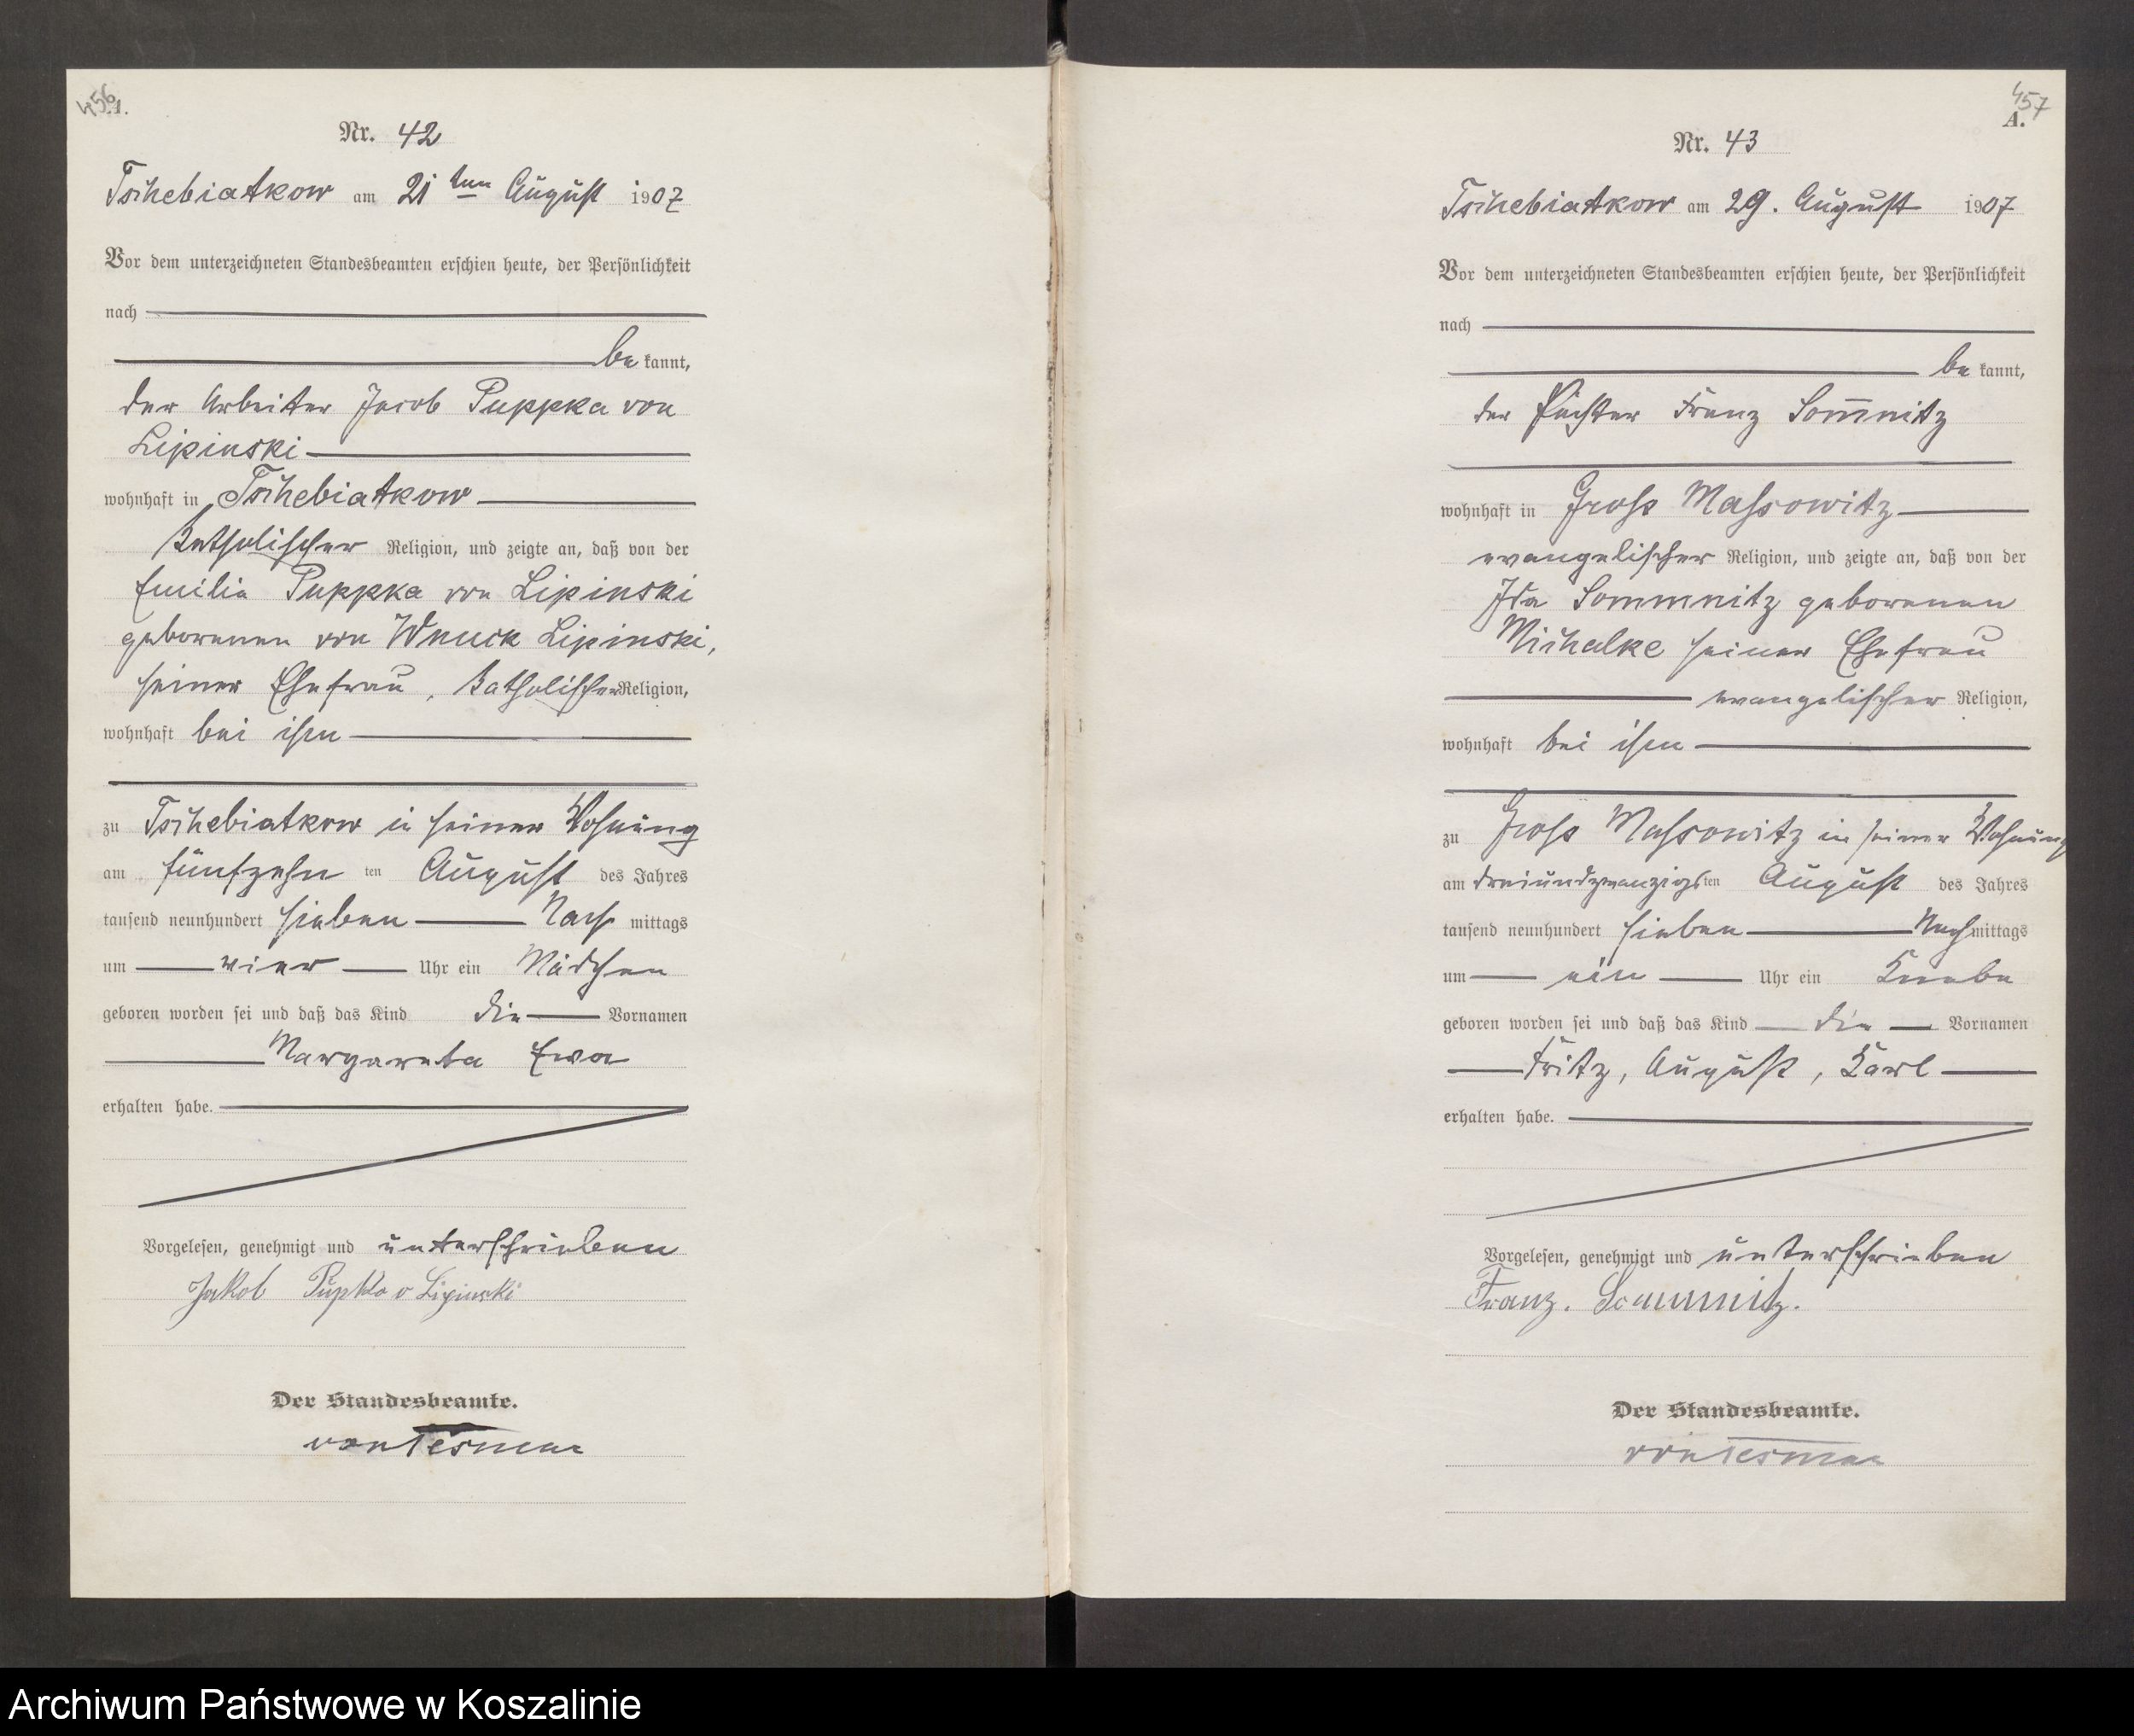 456
A.
Nr. 42
Tschebiatkow am 21ten August 1907
Vor dem unterzeichneten Standesbeamten erschien heute, der Persönlichkeit
nach
be kannt,
der Arbeiter Jacob Puppka von
Lipinski
wohnhaft in Tschebiatkow
katholischer Religion, und zeigte an, daß von der
Emilie Puppka von Lipinski
geborenen von Wnuck Lipinski,
seiner Ehefrau, katholischer Religion,
wohnhaft bei ihm
zu Tschebiatkow in seiner Wohnung
am fünfzehn ten August des Jahres
tausend neunhundert sieben Nach mittags
um vier Uhr ein Mädchen
geboren worden sei und daß das Kind die Vornamen
Margareta Ewa
erhalten habe.
Vorgelesen, genehmigt und unterschrieben
Jakob Pupka v Lipinski
Der Standesbeamte.
457
A.
Nr. 43
Tschebiatkow am 29. August 1907
Vor dem unterzeichneten Standesbeamten erschien heute, der Persönlichkeit
nach
be kannt,
der Pächter Franz Som̄nitz
wohnhaft in Gross Massowitz
evangelischer Religion, und zeigte an, daß von der
Ida Sommnitz geborenen
Michalke seiner Ehefrau
evangelischer Religion,
wohnhaft bei ihm
zu Gross Massowitz in seiner Wohnung
am dreiundzwanzigsten August des Jahres
tausend neunhundert sieben Nachmittags
um ein Uhr ein Knabe
geboren worden sei und daß das Kind die Vornamen
Fritz, August, Karl
erhalten habe.
Vorgelesen, genehmigt und unterschrieben
Franz. Sommnitz.
Der Standesbeamte.
Archiwum Państwowe w Koszalinie